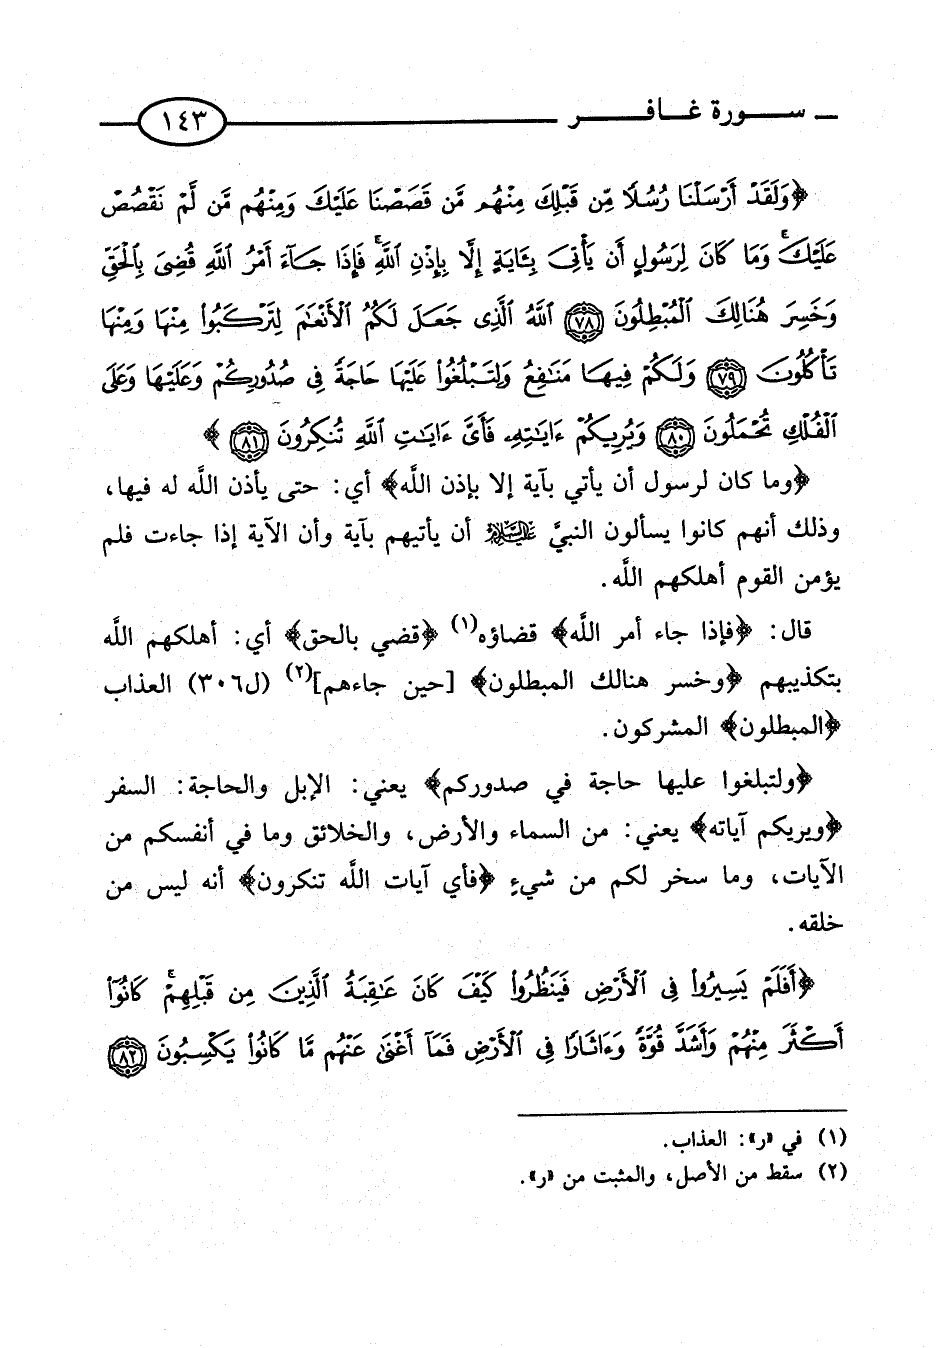 ســورة غــافــر ١٤٣
﴿وَلَقَدْ أَرْسَلْنَا رُسُلًا مِّن قَبْلِكَ مِنْهُم مَّن قَصَصْنَا عَلَيْكَ وَمِنْهُم مَّن لَّمْ نَقْصُصْ
عَلَيْكَ ۗ وَمَا كَانَ لِرَسُولٍ أَن يَأْتِىَ بِـَٔايَةٍ إِلَّا بِإِذْنِ ٱللَّهِ ۚ فَإِذَا جَآءَ أَمْرُ ٱللَّهِ قُضِىَ بِٱلْحَقِّ
وَخَسِرَ هُنَالِكَ ٱلْمُبْطِلُونَ ٧٨ ٱللَّهُ ٱلَّذِى جَعَلَ لَكُمُ ٱلْأَنْعَٰمَ لِتَرْكَبُوا۟ مِنْهَا وَمِنْهَا
تَأْكُلُونَ ٧٩ وَلَكُمْ فِيهَا مَنَٰفِعُ وَلِتَبْلُغُوا۟ عَلَيْهَا حَاجَةً فِى صُدُورِكُمْ وَعَلَيْهَا وَعَلَى
ٱلْفُلْكِ تُحْمَلُونَ ٨٠ وَيُرِيكُمْ ءَايَٰتِهِۦ فَأَىَّ ءَايَٰتِ ٱللَّهِ تُنكِرُونَ ٨١﴾
﴿وما كان لرسول أن يأتي بآية إلا بإذن اللَّه﴾ أي: حتى يأذن اللَّه له فيها،
وذلك أنهم كانوا يسألون النبيَّ عليه السلام أن يأتيهم بآية وأن الآية إذا جاءت فلم
يؤمن القوم أهلكهم اللَّه.
قال: ﴿فإذا جاء أمر اللَّه﴾ قضاؤه(١) ﴿قضي بالحق﴾ أي: أهلكهم اللَّه
بتكذيبهم ﴿وخسر هنالك المبطلون﴾ [حين جاءهم](٢) (ل٣٠٦) العذاب
﴿المبطلون﴾ المشركون.
﴿ولتبلغوا عليها حاجة في صدوركم﴾ يعني: الإبل والحاجة: السفر
﴿ويريكم آياته﴾ يعني: من السماء والأرض، والخلائق وما في أنفسكم من
الآيات، وما سخر لكم من شيءٍ ﴿فأي آيات اللَّه تنكرون﴾ أنه ليس من
خلقه.
﴿أَفَلَمْ يَسِيرُوا۟ فِى ٱلْأَرْضِ فَيَنظُرُوا۟ كَيْفَ كَانَ عَٰقِبَةُ ٱلَّذِينَ مِن قَبْلِهِمْ ۚ كَانُوٓا۟
أَكْثَرَ مِنْهُمْ وَأَشَدَّ قُوَّةً وَءَاثَارًا فِى ٱلْأَرْضِ فَمَآ أَغْنَىٰ عَنْهُم مَّا كَانُوا۟ يَكْسِبُونَ ٨٢
(١) في «ر»: العذاب.
(٢) سقط من الأصل، والمثبت من «ر».